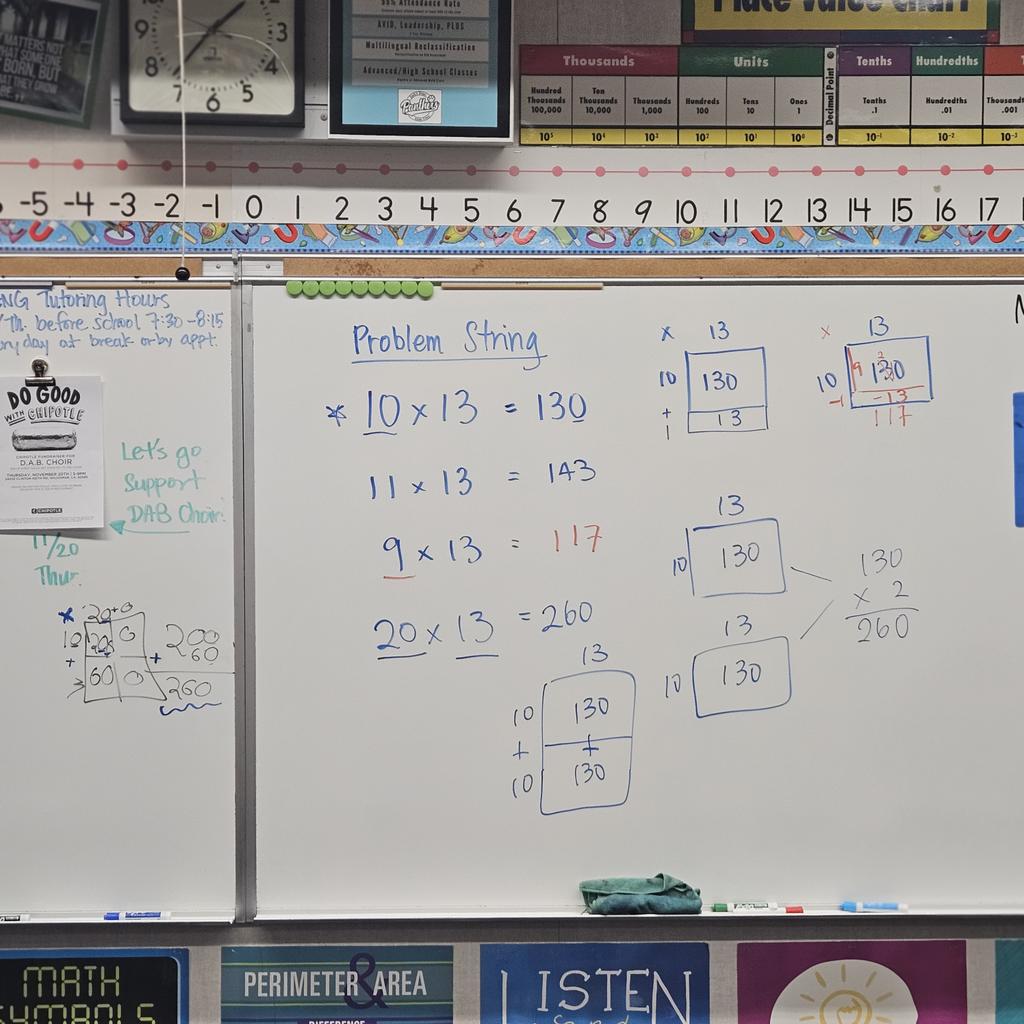 MATTERS NOT
WHAT SOMEONE
BORN, BUT
WHAT THEY GROW
9 3
8 4
7 6 5
95% Attendance Rate
AVID, Leadership, PLUS
Multilingual Reclassification
Advanced/High School Classes
Panthers
Place Value Chart
Thousands Units Decimal Point Tenths Hundredths
Hundred Thousands 100,000 Ten Thousands 10,000 Thousands 1,000 Hundreds 100 Tens 10 Ones 1 Tenths .1 Hundredths .01 .001
10⁵ 10⁴ 10³ 10² 10¹ 10⁰ 10⁻¹ 10⁻² 10⁻³
-5 -4 -3 -2 -1 0 1 2 3 4 5 6 7 8 9 10 11 12 13 14 15 16 17
NG Tutoring Hours
Th. before school 7:30 - 8:15
ry day at break or by appt.
DO GOOD
WITH CHIPOTLE
CHIPOTLE FUNDRAISER FOR
D.A.B. CHOIR
THURSDAY, NOVEMBER 20TH | 5-9PM
CHIPOTLE
Let's go
Support
DAB Choir!
11/20
Thur.
× 20+0
10 0 200
+ + 60
3 60 0 260
Problem String
* 10 × 13 = 130
11 × 13 = 143
9 × 13 = 117
20 × 13 = 260
× 13
10 130
+
1 13
× 13
10 9 130
-1 -13
117
13
10 130
13
10 130
130
× 2
260
13
10 130
+ +
10 130
MATH
SYMBOLS
PERIMETER & AREA
DIFFERENCE
LISTEN